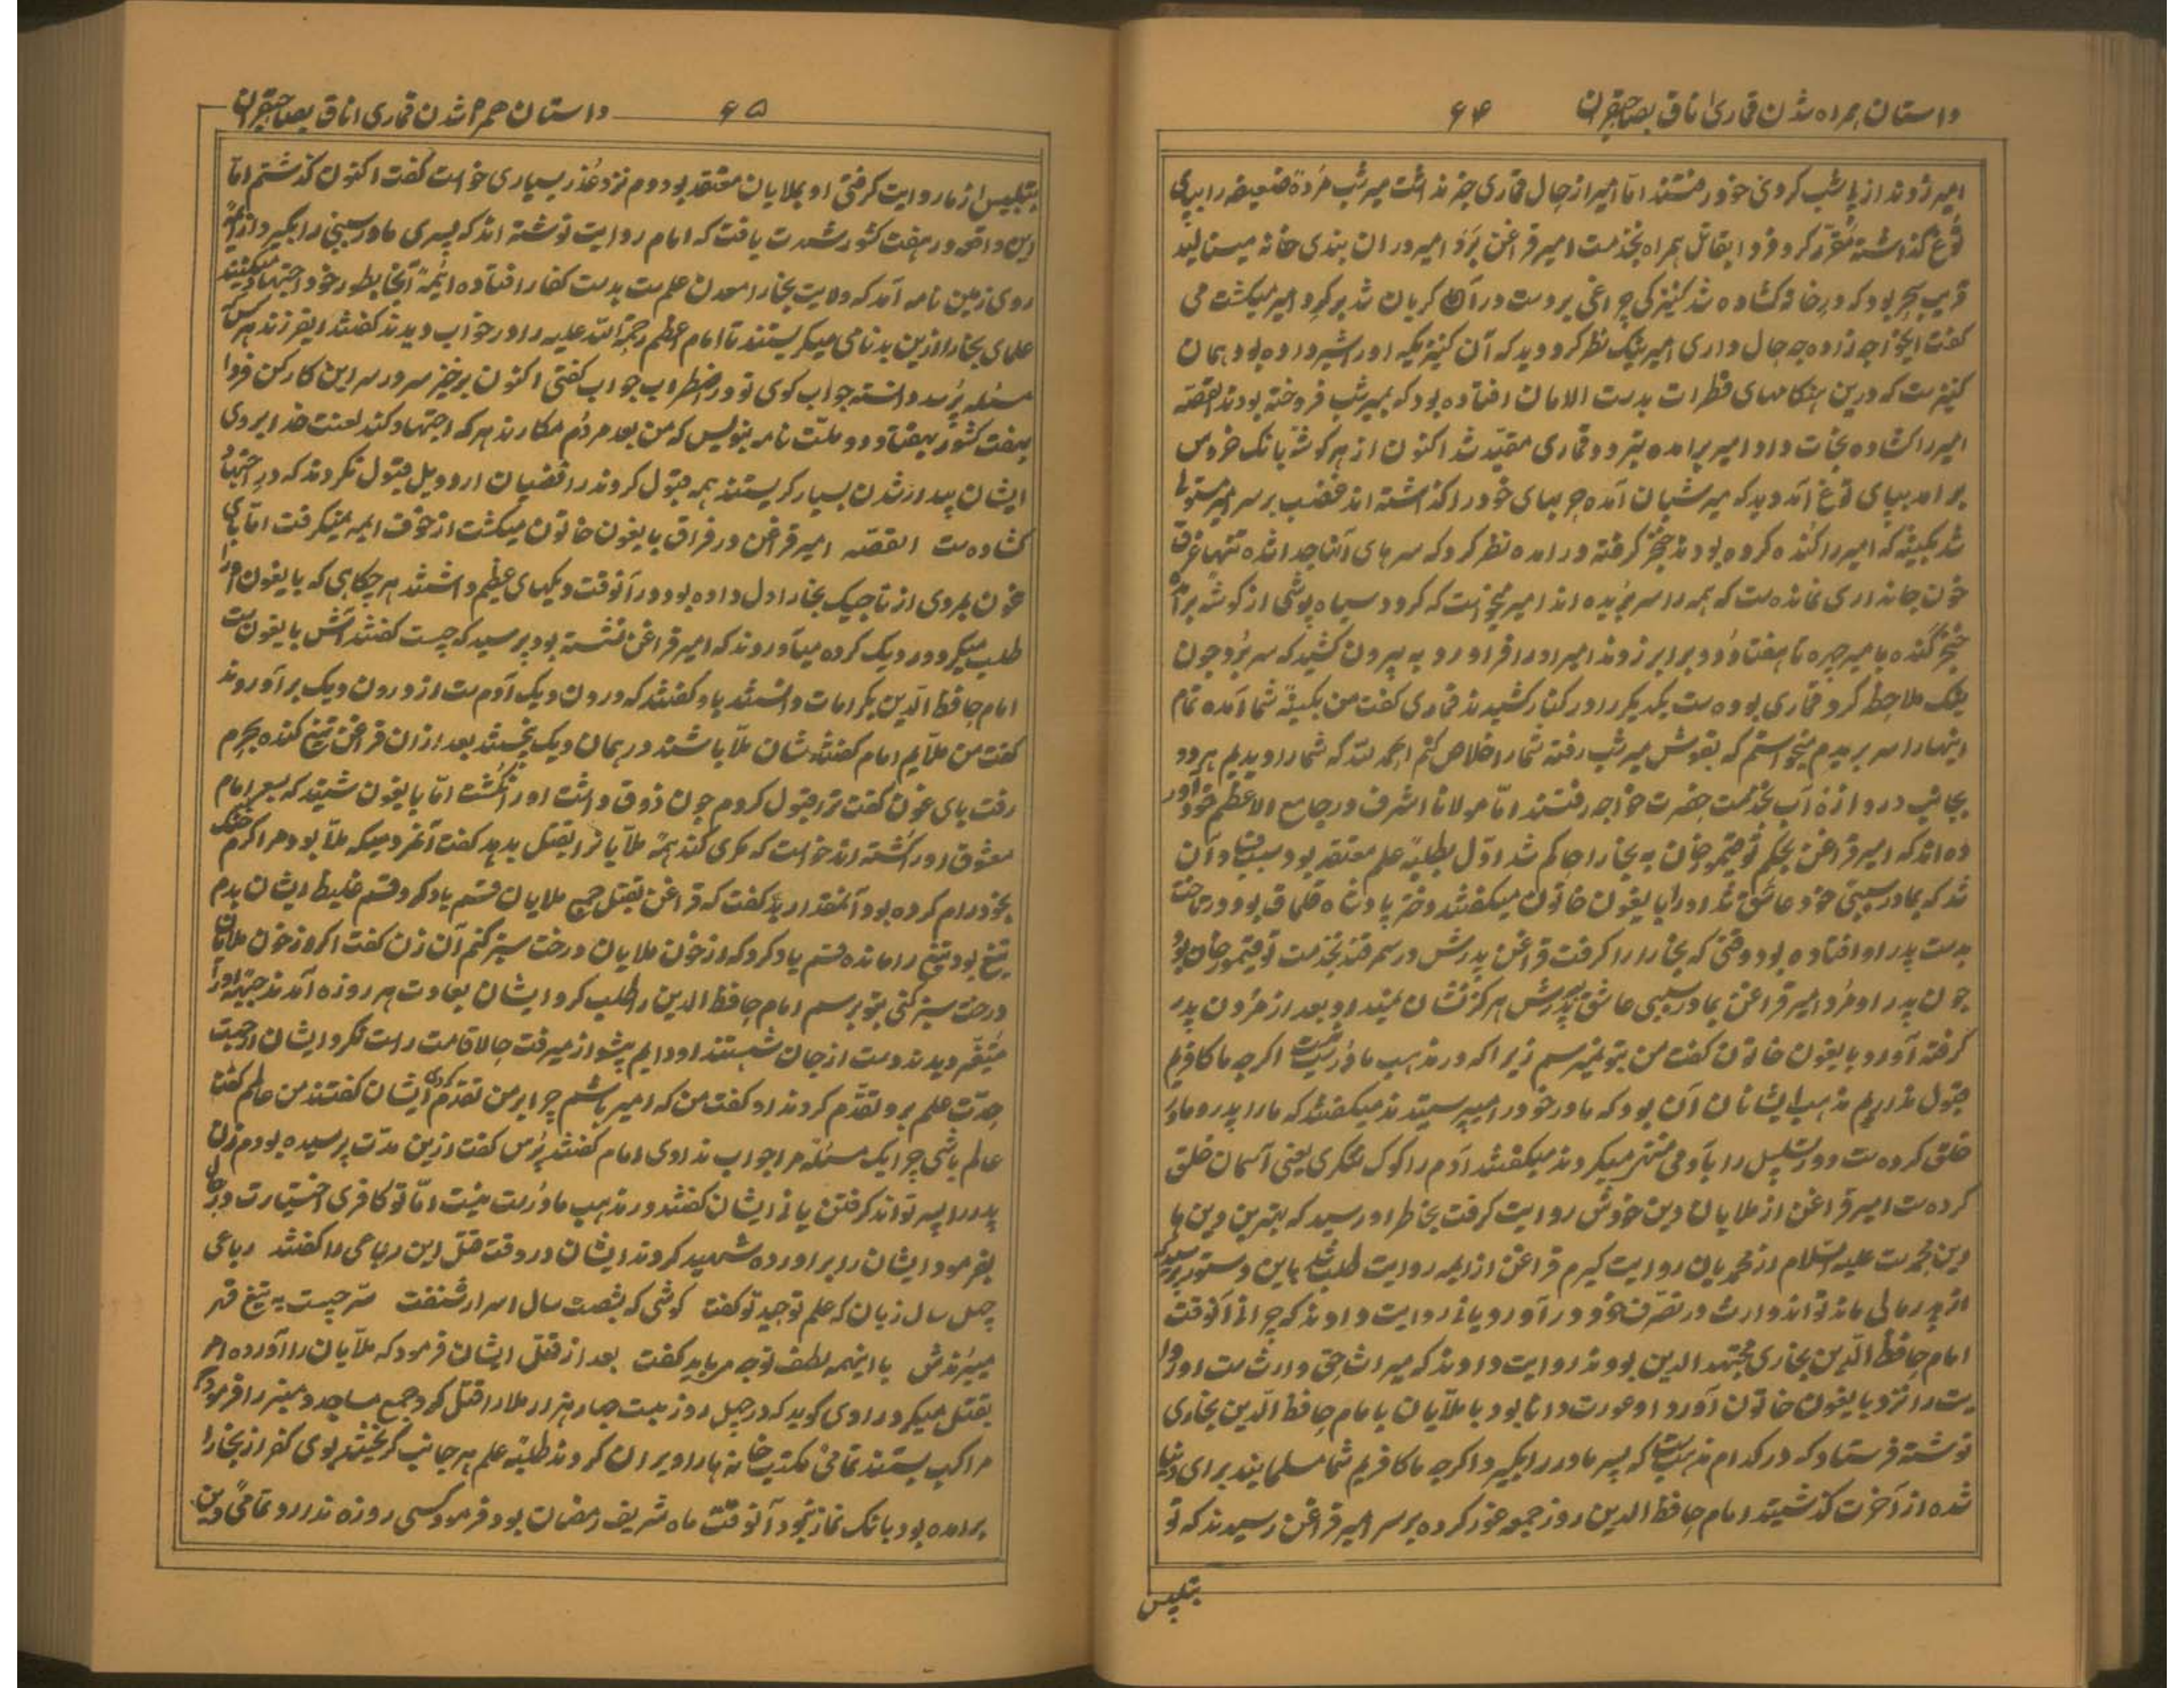 داستان همراه شدن قماری اناق بصاحبقران ۶۴
امیر زدند از پا شب کردنی خود رفتند اما امیر از حال قماری خبر نداشت میر شب مرده ضعیفه را بپای
توغ گذاشته مقرر کرد فردا بقاتل همراه بخدمت امیر قزاغن برد امیر در ان بندی خانه مینالید
قریب سحر بود که در خانه کشاده شد کنیزکی چراغی بر دست درآمد گریان شد بر گرد امیر میگشت می
گفت ایخواجه زاده چه حال داری امیر نیک نظر کرد دید که آن کنیزیکه اورا شیر داده بود همان
کنیز است که درین هنگامهای فطرات بدست الامان افتاده بود که بمیر شب فروخته بودند القصه
امیر را کشاده نجات داد امیر برامده بتردد قماری مقید شد اکنون از هر گوشه بانک خروس
برامد بپای توغ آمد دید که میر شبان آمده چوبهای خود را گذاشته اند غضب بر سر امیر مستولی
شد بکینه که امیر را کنده کرده بودند خنجر گرفته درامده نظر کرد که سرهای آنان جدا شده تنها غرق
خون جانداری نمانده است که همه را سر بریده اند امیر متحیر است که کرد سیاه پوشی از گوشه برآمد
خنجر کنده با میر چره تا هفتاد و دو برابر زدند امیر اورا فراورد به بیرون کشید که سر برد چون
نیک ملاحظه کرد قماری بوده است یکدیگر را در کنار کشیدند قماری گفت من بکینه شما آمده تمام
اینها را سر بریدم میخواستم که بقوش میر شب رفته شمارا خلاص کنم الحمد لله که شما را دیدیم هر دو
بجانب دروازه آب بخدمت حضرت خواجه رفتند اما مولانا اشرف در جامع الاعظم خود آورده
ده اند که امیر قزاغن بحکم توقتمور خان به بخارا حاکم شد اول بطلبه علم معتقد بود سبب فساد آن
شد که بمادر سببی خود عاشق شد اورا بایغون خاتون میگفتند دختر پادشاه قلماق بود در تاخت
بدست پدر او افتاده بود وقتی که بخارا را گرفت قزاغن پدرش در سمرقند بخدمت توقتمور خان بود
چون پدر او مرد امیر قزاغن بمادر سببی عاشق پدرش هرگز نشان نمیداد بعد از مردن پدر
گرفته آورد بایغون خاتون گفت من بتو نمیرسم زیرا که در مذهب ما درست نیست اگرچه ما کافریم
قبول نداریم مذهب ایشانان آن بود که مادر خود را میپرستیدند میگفتند که مارا پدر و مادر
خلق کرده است و در تسلسل را بآدمی منتهی میکردند میگفتند آدم را کوک تنگری یعنی آسمان خلق
کرده است امیر قزاغن از ملایان دین خودش روایت گرفت بخاطر او رسید که بهترین دین ها
دین محمد است علیه السلام از محمدیان روایت گیرم قزاغن از ایمه روایت طلب شد باین دستور پرسید که
از پدر مالی ماند تواند وارث در تصرف خود درآورد یا نی روایت دادند که چرا نی آنوقت
امام حافظ الدین بخاری مجتهد الدین بودند روایت دادند که میراث حق وارث است او روا
یت را نزد بایغون خاتون آورد او عورت دانا بود با ملایان با امام حافظ الدین بخاری
نوشته فرستاد که در کدام مذهب است که پسر مادر را بگیرد اگرچه ما کافریم شما مسلمانید برای دنیا
شده از آخرت گذشتید امام حافظ الدین روز جمعه غوز کرده بر سر امیر قزاغن رسیدند که تو
بتلبیس
داستان همراه شدن قماری اناق بصاحبقران ۶۵
بتلبیس از ما روایت گرفتی او بملایان معتقد بود دم نزد عذر بسیاری خواست گفت اکنون گذشتم اما
این واقعه در هفت کشور شهرت یافت که امام روایت نوشته اند که پسری مادر سببی را بگیرد از ایمه
روی زمین نامه آمد که ولایت بخارا معدن علم است بدست کفار افتاده ایمه آنجا بطور خود اجتهاد میکنند
علمای بخارا ازین بدنامی میگریستند تا امام اعظم رحمة الله علیه را در خواب دیدند گفتند ایفرزند هر کس
مسئله پرسد دانسته جواب گوی تو در اضطراب جواب گفتی اکنون برخیز سر در سر این کار کن فردا
بهفت کشور بهفتاد و دو ملت نامه بنویس که من بعد مردم مکارند هر که اجتهاد کند لعنت خدا بروی
ایشان بیدار شدن بسیار گریستند همه قبول کردند رافضیان اردویل قبول نکردند که در اجتهاد
کشاده است القصه امیر قزاغن در فراق بایغون خاتون میگشت از خوف ایمه نمیگرفت اما بای
غون بمردی از تاجیک بخارا دل داده بود در آنوقت دیکهای عظیم داشتند هرچگاهی که بایغون اورا
طلب میکرد در دیک کرده میآوردند که امیر قزاغن نشسته بود پرسید که چیست گفتند آش بایغون است
امام حافظ الدین بکرامات دانستند یاد گفتند که درون دیک آدم است از درون دیک برآوردند
گفت من ملایم امام گفتند شان ملا باشند در همان دیک پختند بعد از ان قزاغن تیغ کنده بحرم
رفت بای غون گفت ترا قبول کردم چون ذوق داشت اورا نکشت اما بایغون شنید که بسعی امام
معشوق اورا کشته اند خواست که مکری کند همه ملایانرا بقتل بدهد گفت آنمردمیکه ملا بود مرا گرم خنک
بخود رام کرده بود آنمقدار بد گفت که قزاغن بقتل جمیع ملایان قسم یاد کرد قسم غلیط ایشان بدم
تیغ بود تیغ را مانده قسم یاد کرد که از خون ملایان درخت سبز کنم آن زن گفت اگر از خون ملایان
درخت سبز کنی بتو برسم امام حافظ الدین را طلب کرد ایشان بعادت هر روزه آمدند چهره اورا
متغیر دیدند دست از جان شستند او دایم پیشواز میرفت حالا قامت راست نکرد ایشان از جهت
حدت علم برو تقدم کردند او گفت من که امیر باشم چرا بر من تقدم کردی ایشان گفتند من عالم گفت
عالم باشی چرا یک مسئله مرا جواب نداوی امام گفتند پرس گفت ازین مدت پرسیده بودم زن
پدر را پسر تواند گرفتن یا نی ایشان گفتند در مذهب ما درست نیست اما تو کافری اختیارت در حال
بفرمود ایشان را برآورده شهید کردند ایشان در وقت قتل این رباعی را گفتند رباعی
چهل سال زبان که علم توحید تو گفت گوشی که بشصت سال اسرار شنفت سر چیست به تیغ قهر
میبرندش با اینهمه لطف توجه مرباید گفت بعد از قتل ایشان فرمود که ملایان را آورده امر
بقتل میکرد راوی گوید که در چهل روز بیست چهار هزار ملا را قتل کرد جمیع مساجد و منبر را فرمود که
مراکب بستند تمامی مکتب خانه ها را ویران کردند طلبه علم هر جانب گریختند بوی کفر از بخارا
برامده بود بانک نماز نبود آنوقت ماه شریف رمضان بود فرمود کسی روزه ندارد تمامی دین